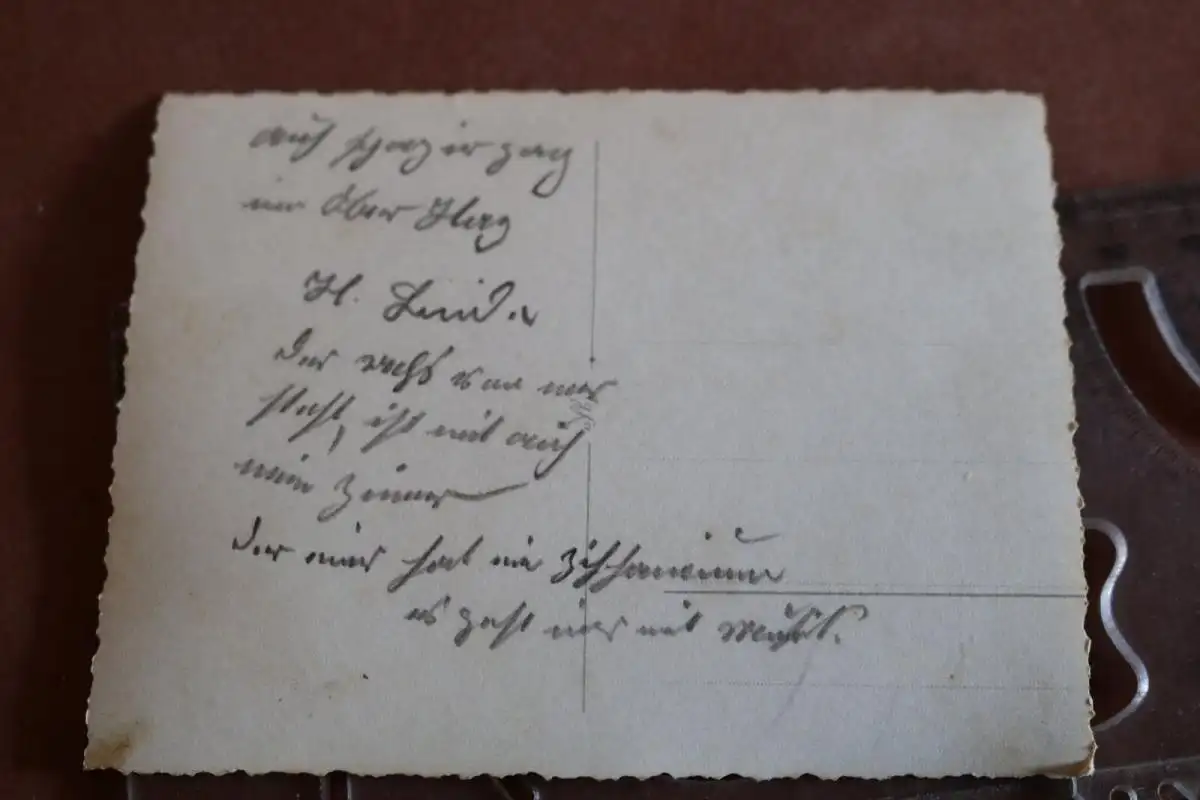 auf spaziergang
im Ober Hag
H. Lind.
der rechts von mir
steht, ist mit auf
mein Zimer
der mir hat ein
es geht nur mit Musik.